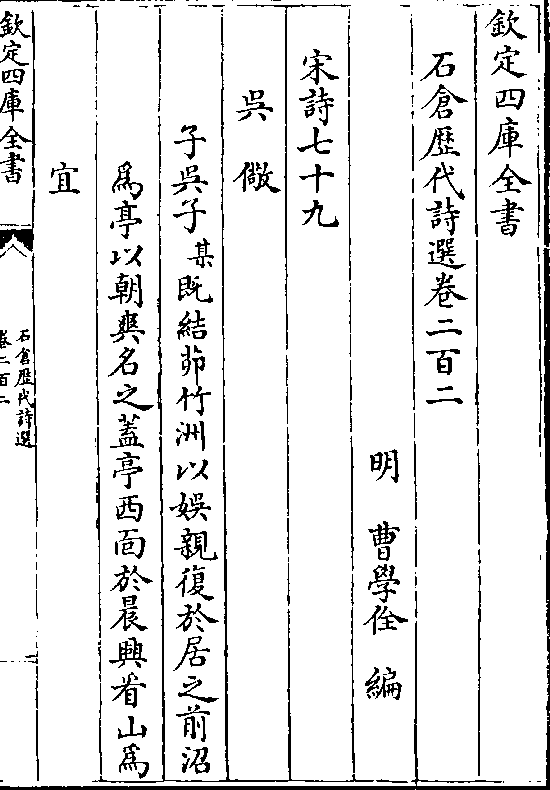 欽定四庫全書
石倉歷代詩選卷二百二
明 曹學佺 編
宋詩七十九
吳儆
子吳子某既結茆竹洲以娛親復於居之前沼
為亭以朝爽名之蓋亭西面於晨興看山為
宜
欽定四庫全書
石倉歷代詩選
卷二百二